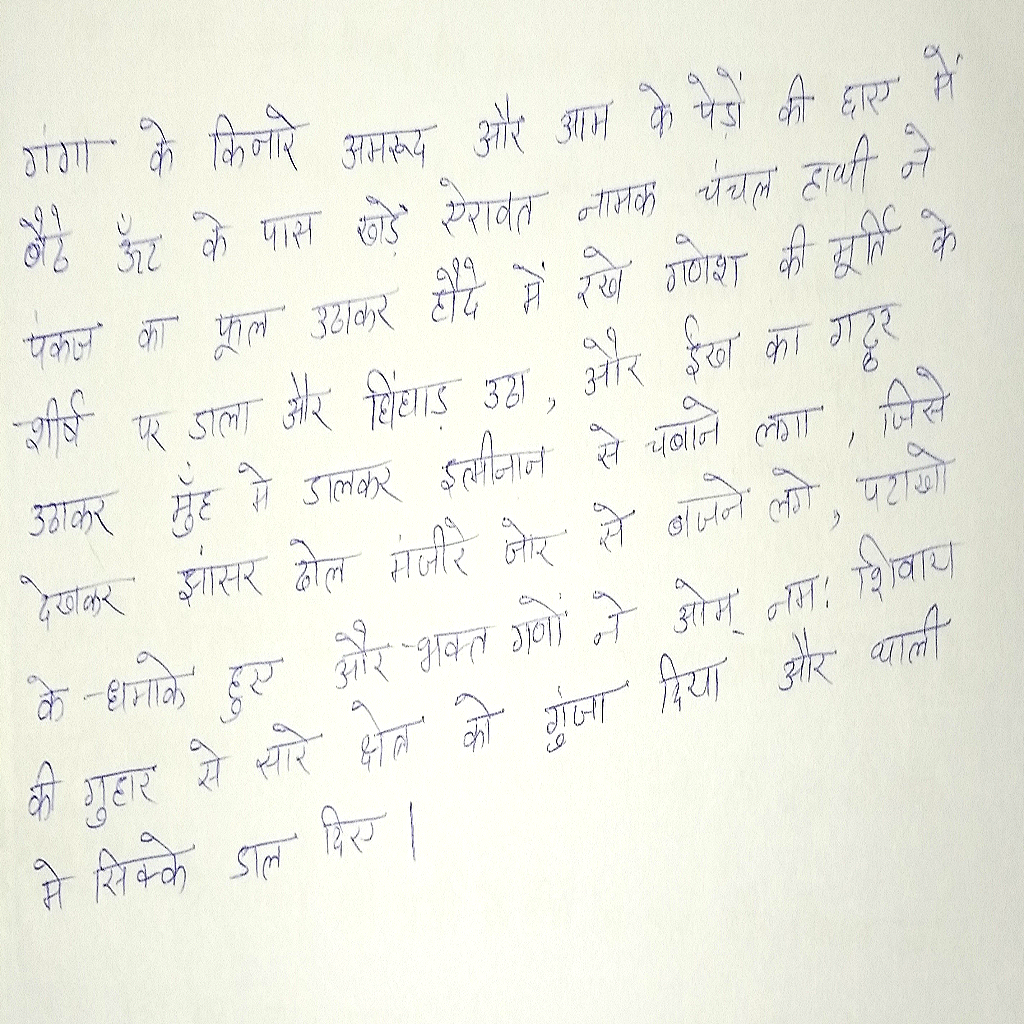 गंगा के किनारे अमरूद और आम के पेड़ों की छाए में
बैठे ऊँट के पास खड़े ऐरावत नामक चंचल हाथी ने
पंकज का फूल उठाकर हौदे में रखे गणेश की मूर्ति के
शीर्ष पर डाला और चिंघाड़ उठा, और ईख का गट्ठर
उठाकर मुँह मे डालकर इत्मीनान से चबाने लगा, जिसे
देखकर झांसर ढोल मंजीरे जोर से बजने लगे, पटाखो
के धमाके हुए और भक्त गणों ने ओम् नमः शिवाय
की गुहार से सारे क्षेत्र को गुंजा दिया और थाली
मे सिक्के डाल दिए |